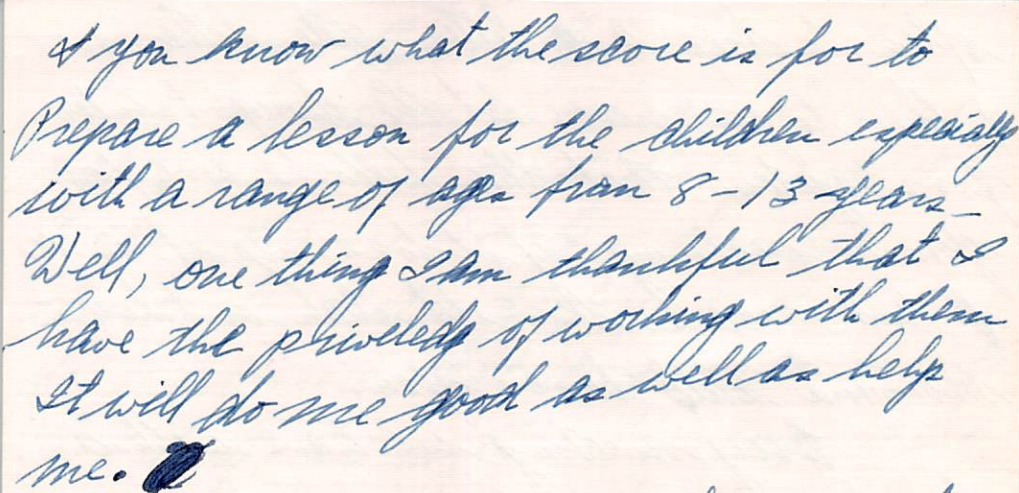 & you know what the score is for to
Prepare a lesson for the children especially
with a range of ages from 8-13 years-
Well, one thing I am thankful that I
have the priveledg of working with them
It will do me good as well as help
me.